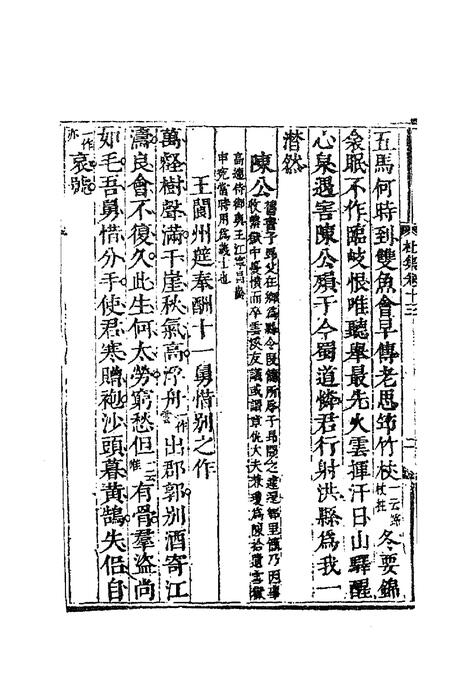 杜集卷十三
五馬何時到雙魚會早傳老思筇竹杖一云筇杖拄冬要錦
衾眠不作臨岐恨唯聽舉最先火雲揮汗日山驛醒
心泉遇害陳公殞于今蜀道憐君行射洪縣為我一
潸然
陳公舊書子昻父在鄉為縣令段簡所辱子昻聞之遽還鄉里簡乃因事
收繫獄中憂憤而卒雲溪友議或謂章仇大夫兼瓊為陳拾遺雪獄
高適侍御與王江寧昌齡
申寃當時用為義士也
王閬州筵奉酬十一舅惜別之作
萬壑樹聲滿千崖秋氣高浮舟一作雲出郡郭別酒寄江
濤良會不復久此生何太勞窮愁但一云惟有骨羣盜尚
如毛吾舅惜分手使君寒贈袍沙頭暮黃鵠失侶自
一作亦哀號